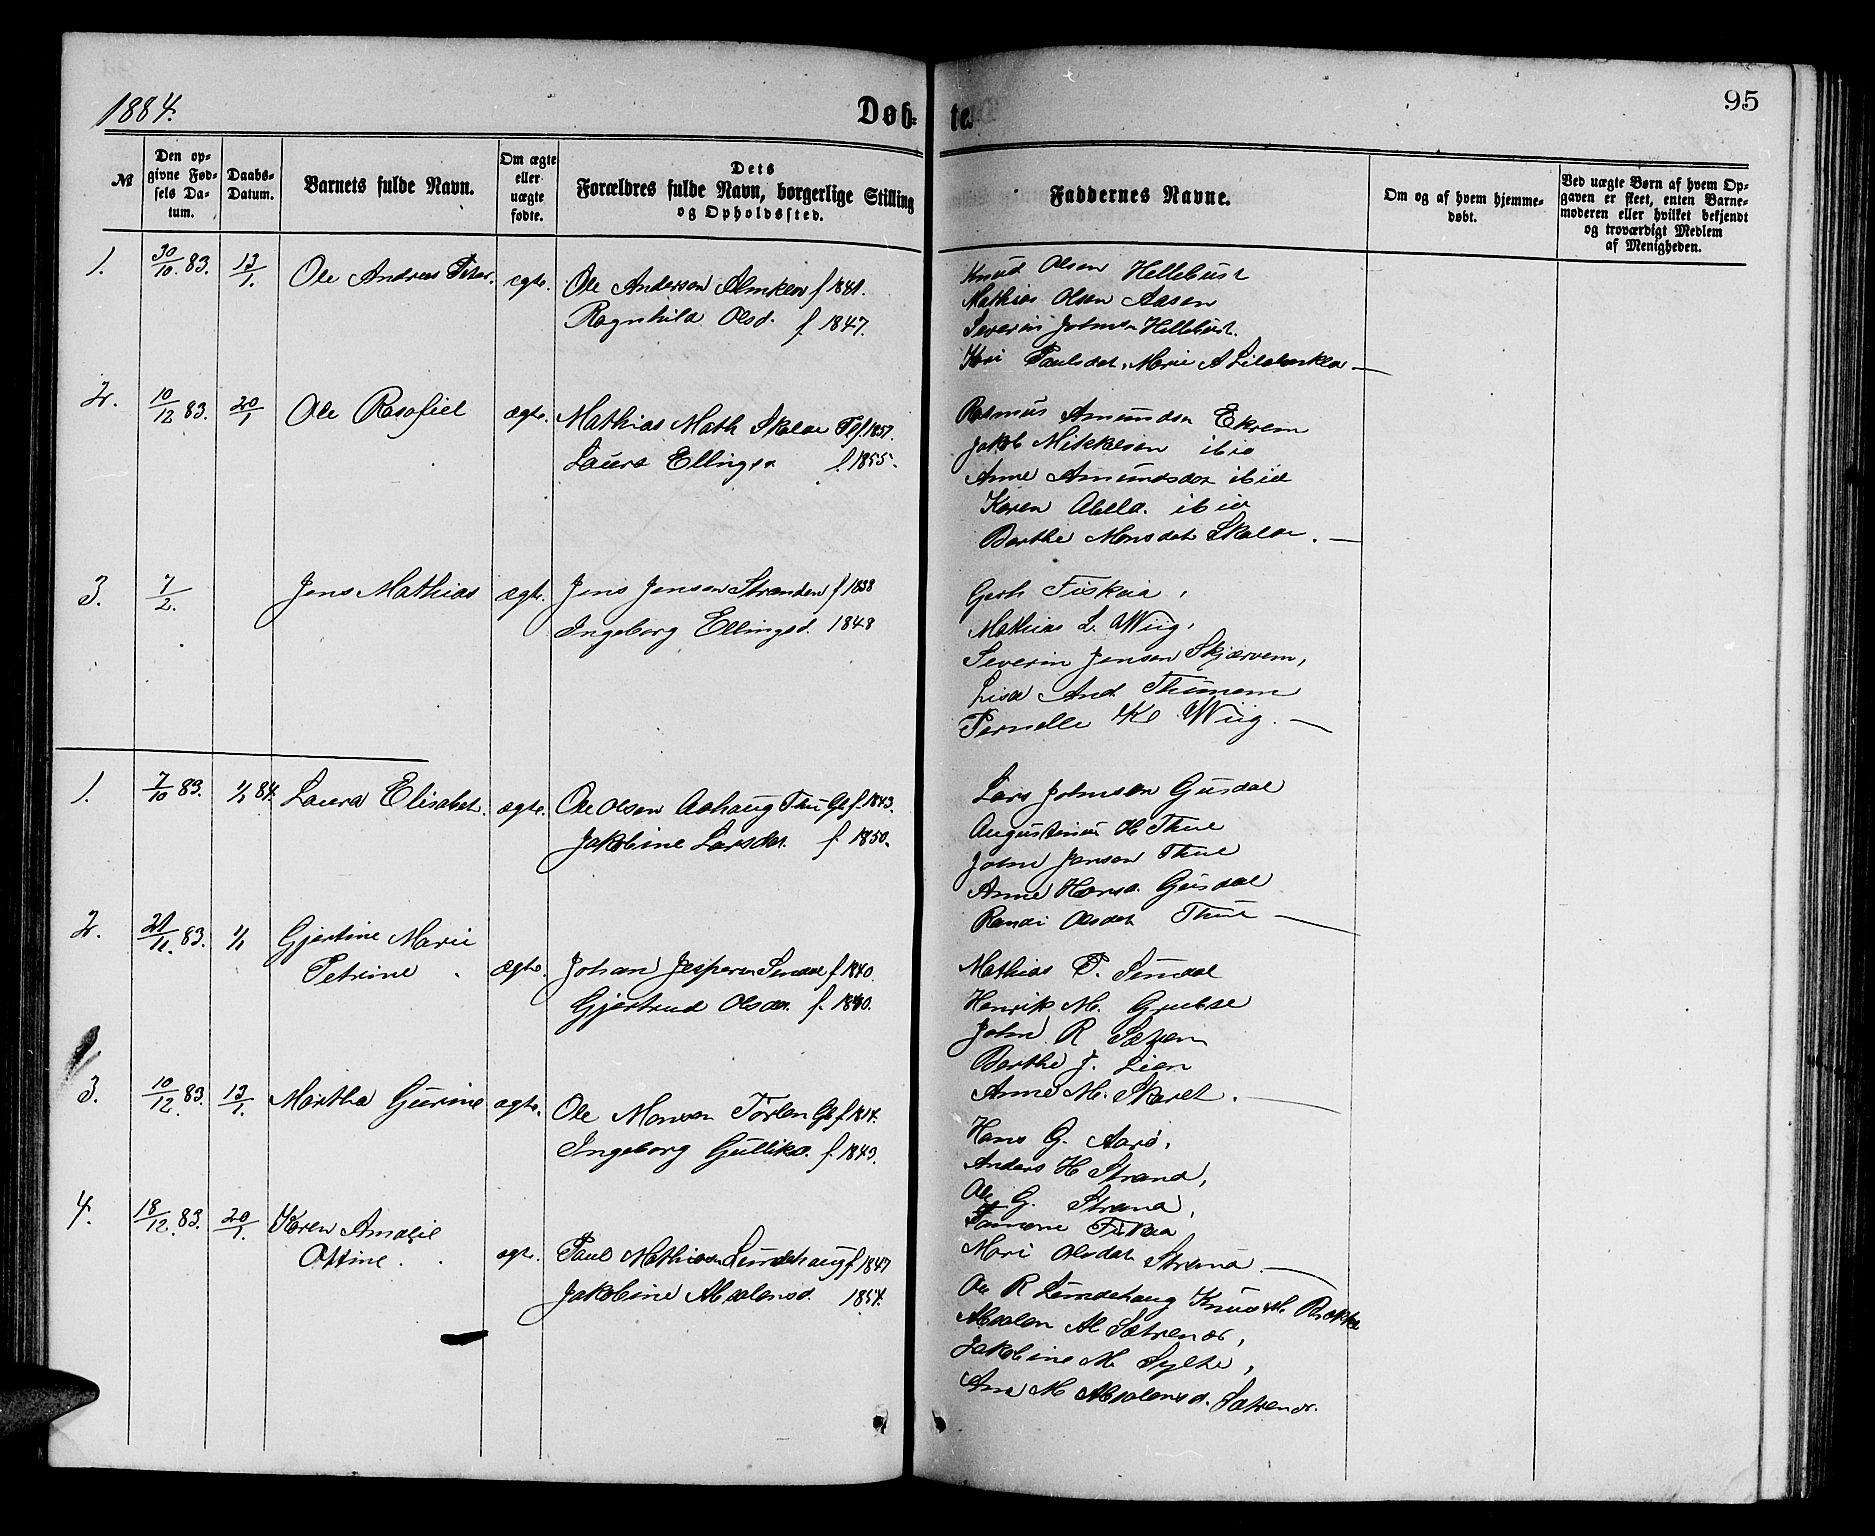 1884.
Døb-
te.
95
№
Den op-
givne Fød-
sels Da-
tum.
Daabs-
Datum.
Barnets fulde Navn.
Om ægte
eller
uægte
fødte.
Dets
Forældres fulde Navn, borgerlige Stilling
og Opholdssted.
Faddernes Navne.
Om og af hvem hjemme-
døbt.
Ved uægte Børn af hvem Op-
gaven er skeet, enten Barne-
moderen eller hvilket bekjendt
og troværdigt Medlem
af Menigheden.
1. 30/10. 83. 13/1. Ole Andreas Peter. ægte. Ole Anderson f 1841.
Ragnhild Olsd. f. 1847.
Knud Olsen Hellebust
Mathias Olsen Aasen
Severin Johnsen Hellebust.
Kari Paulsdat, Marie A
2. 10/12 83. 20/1 Ole Rasofiel ægte. Mathias Math Skalar f 1857.
Laura Ellingsd f. 1855.
Rasmus Amundsen Ekrem
Jakob Mikkelsen ibid
Anne Amundsdat ibid
Karen Abeld. ibid
Berthe Monsdat Skalar. —
3. 7/2. Jens Mathias ægte. Jens Jensen Stranden f 1838
Ingeborg Ellingsd. 1848
Gerh Fiskaa,
Mathias L. Wiig,
Severin Jensen Skjærvem,
Lisa And Thunem
Pernelle Kl Wiig. —
1. 7/10 83. 1/1 84. Laura Elisabet. ægte. Ole Olsen Aahaug Thu Gbf. 1843.
Jakobine Larsdat. f. 1850.
Lars Johnsen Gusdal
Augustinus H Thue
John Jensen Thue
Anne Hansd. Gusdal
Randi Olsdat Thue —
2. 21/11. 83. 1/1 Gjertine Marie
Petrine. ægte. Johan Jespersen f 1840.
Gjertrud Olsdat. f. 1840.
Mathias P.
Henrik M. Grubse
John R Sætren
Berthe J. Lien
Anne M. Skaret. —
3. 10/12. 83. 13/1. Martha Gurine ægte. Ole Monsen Torlen Gbf 1817.
Ingeborg Gulliksd. f. 1843.
Hans G. Aarø,
Anders H Strand,
Ole G. Strand,
Fiskaa
Mari Olsdat Strand. —
4. 18/12. 83. 20/1. Karen Amalie
Ottine. ægte. Paul Mathiasen Lundehaug f 1847
Jakobine Absalonsd. 1854.
Ole R Lundehaug Knud M. Brække
Absalon Al Sætrenes,
Jakobine M. Sylte,
Ane M Absalonsd. Sætrenes.